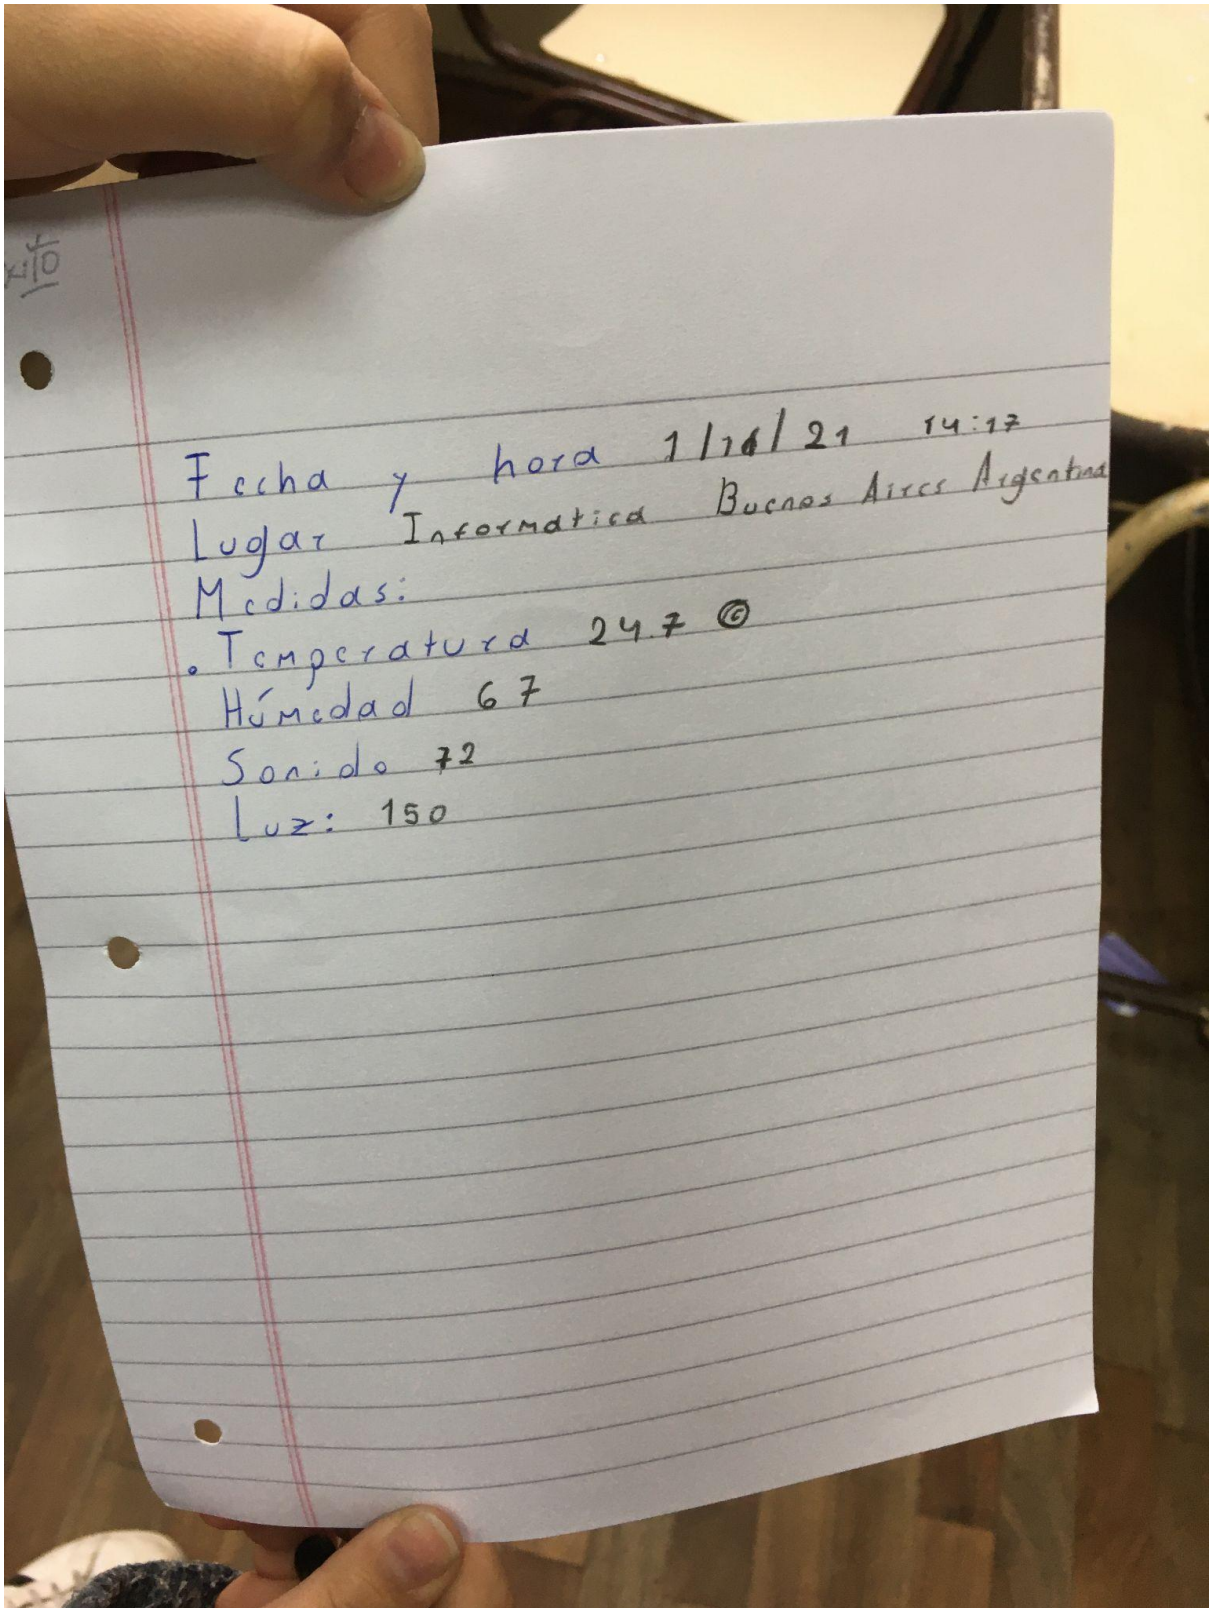 Fecha y hora 1/11/21 14:17
Lugar Informatica Buenos Aires Argentina
Medidas:
• Temperatura 24.7 ©
Húmedad 67
Sonido 72
Luz: 150